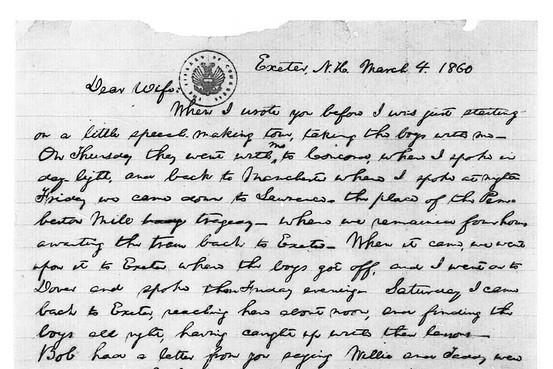 Exeter, N.H. March 4. 1860
Dear Wife:
When I wrote you before I was just starting
on a little speech-making tour, taking the boys with me—
On Thursday they went with me to Concord, where I spoke in
day-light, and back to Manchester where I spoke at night.
Friday we came down to Lawrence—the place of the Pem-
berton Mill tragedy—where we remained four hours
awaiting the train back to Exeter—When it came, we went
upon it to Exeter where the boys got off, and I went on to
Dover and spoke there Friday evening—Saturday I came
back to Exeter, reaching here about noon, and finding the
boys all right, having caught up with their lessons—
Bob had a letter from you saying Willie and Taddy were